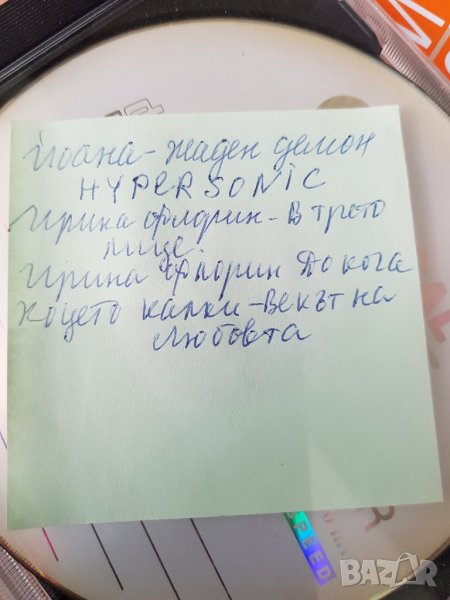 Йоана - жаден демон
HYPERSONIC
Ирина Флорин - В трето
лице.
Ирина Флорин До кога
Коцето калки - Векът на
любовта
SPEED
BAZAR